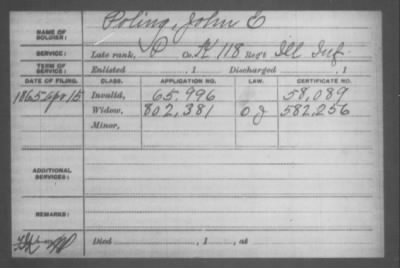 NAME OF SOLDIER: Poling, John C
SERVICE: Late rank, P Co. K 118 Reg't Ill Inf.
TERM OF SERVICE: Enlisted , 1 Discharged , 1
DATE OF FILING. CLASS. APPLICATION NO. LAW. CERTIFICATE NO.
1865 Apr 15 Invalid, 65,996 58,089
Widow, 802,381 582,256
Minor,
ADDITIONAL SERVICES:
REMARKS:
Died , 1 , at